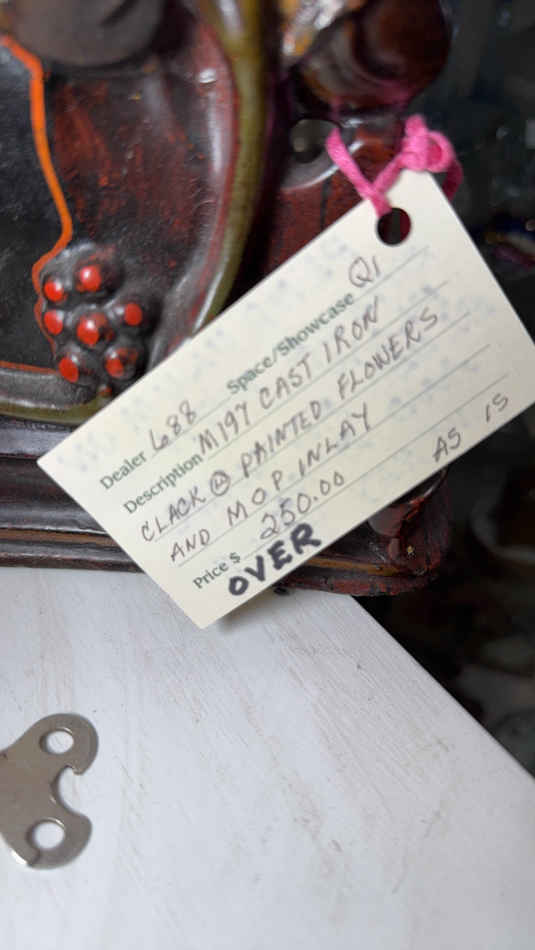 Dealer 688 Space/Showcase Q1
Description M197 CAST IRON
CLACK @ PAINTED FLOWERS
AND M O P INLAY
Price $ 250.00 AS IS
OVER